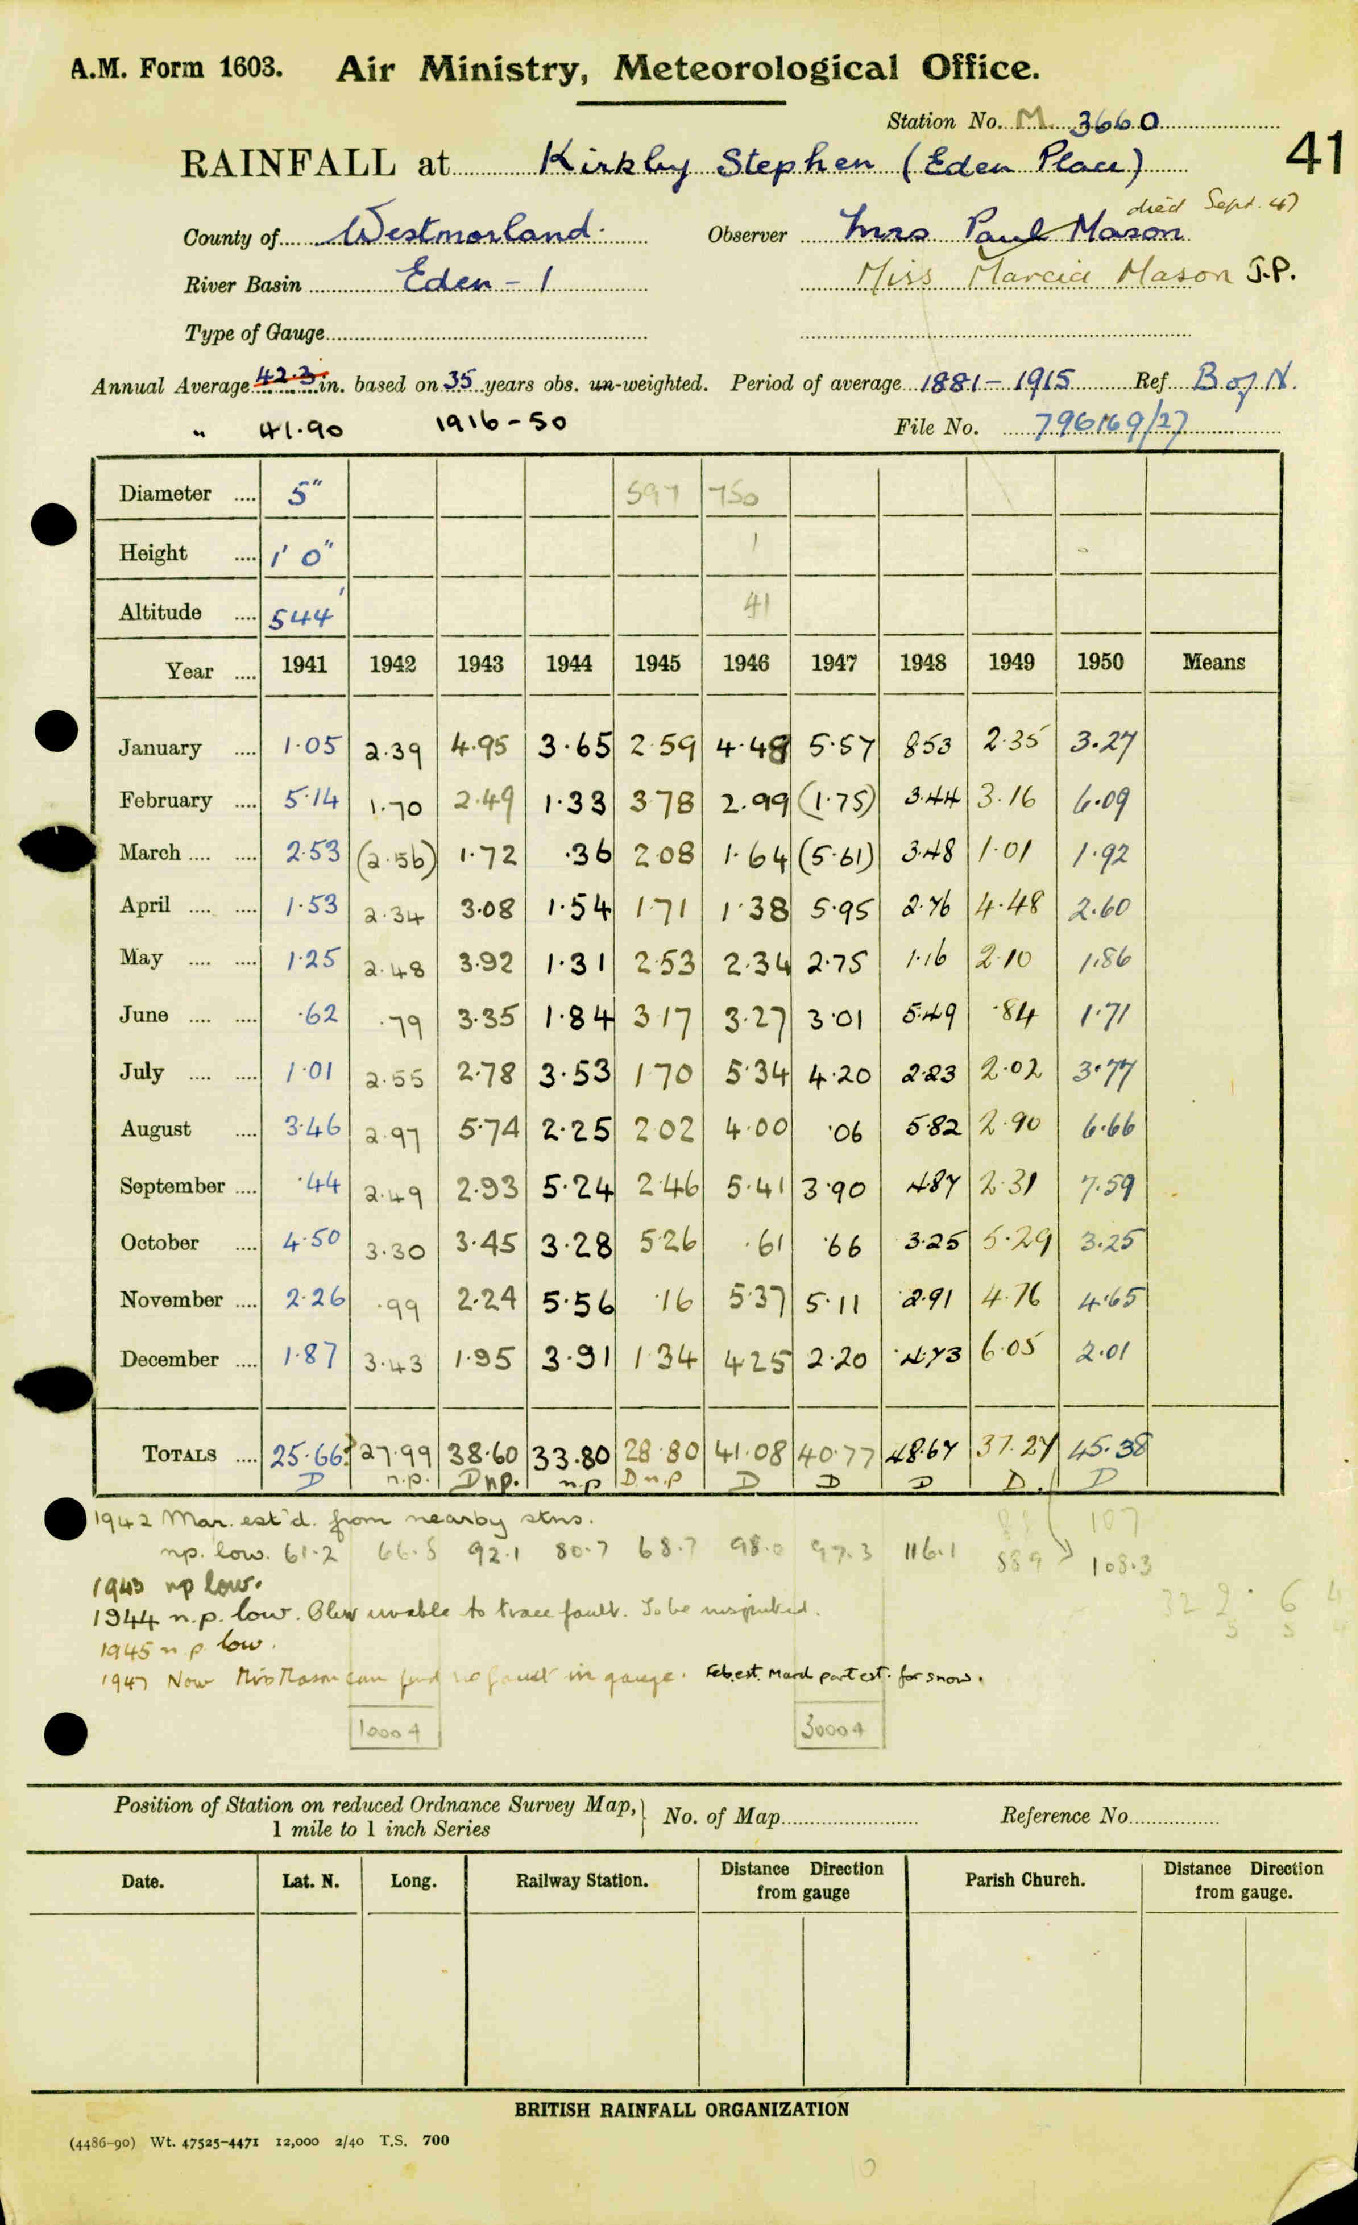 A.M. Form 1603. Air Ministry, Meteorological Office.
Station No. M 3660
41
RAINFALL at Kirkby Stephen (Eden Place)
died Sept. 47
County of Westmorland. Observer Mrs Paul Mason
River Basin Eden - 1 Miss Marcia Mason J.P.
Type of Gauge
Annual Average 42.3 in. based on 35 years obs. un-weighted. Period of average 1881 - 1915 Ref B of N.
" 41.90 1916 - 50 File No. 796169/27
Diameter .... 5" 597 750
Height .... 1' 0" 1
Altitude .... 544' 41
Year .... 1941 1942 1943 1944 1945 1946 1947 1948 1949 1950 Means
January .... 1.05 2.39 4.95 3.65 2.59 4.48 5.57 8.53 2.35 3.27
February .... 5.14 1.70 2.49 1.33 3.78 2.99 (1.75) 3.44 3.16 6.09
March .... .... 2.53 (2.56) 1.72 .36 2.08 1.64 (5.61) 3.48 1.01 1.92
April .... .... 1.53 2.34 3.08 1.54 1.71 1.38 5.95 2.76 4.48 2.60
May .... .... 1.25 2.48 3.92 1.31 2.53 2.34 2.75 1.16 2.10 1.86
June .... .... .62 .79 3.35 1.84 3.17 3.27 3.01 5.49 .84 1.71
July .... .... 1.01 2.55 2.78 3.53 1.70 5.34 4.20 2.23 2.02 3.77
August .... 3.46 2.97 5.74 2.25 2.02 4.00 .06 5.82 2.90 6.66
September .... .44 2.49 2.93 5.24 2.46 5.41 3.90 4.87 2.31 7.59
October .... 4.50 3.30 3.45 3.28 5.26 .61 .66 3.25 5.29 3.25
November .... 2.26 .99 2.24 5.56 .16 5.37 5.11 2.91 4.76 4.65
December .... 1.87 3.43 1.95 3.91 1.34 4.25 2.20 4.73 6.05 2.01
TOTALS .... 25.66? 27.99 38.60 33.80 28.80 41.08 40.77 48.67 37.27 45.38
D n.p. D n.p. n.p D n.p D D D D. D
1942 Mar. est'd. from nearby stns.
88 107
np. low. 61.2 66.8 92.1 80.7 68.7 98.0 97.3 116.1 889 108.3
1943 np low.
1944 n.p. low. Obsr unable to trace fault. To be inspected.
1945 n.p. low.
1947 Now Miss Mason can find no fault in gauge. Feb. est. March part est. for snow.
10004 30004
Position of Station on reduced Ordnance Survey Map, No. of Map Reference No
1 mile to 1 inch Series
Date. Lat. N. Long. Railway Station. Distance Direction from gauge Parish Church. Distance Direction from gauge.
BRITISH RAINFALL ORGANIZATION
(4486-90) Wt. 47525-4471 12,000 2/40 T.S. 700